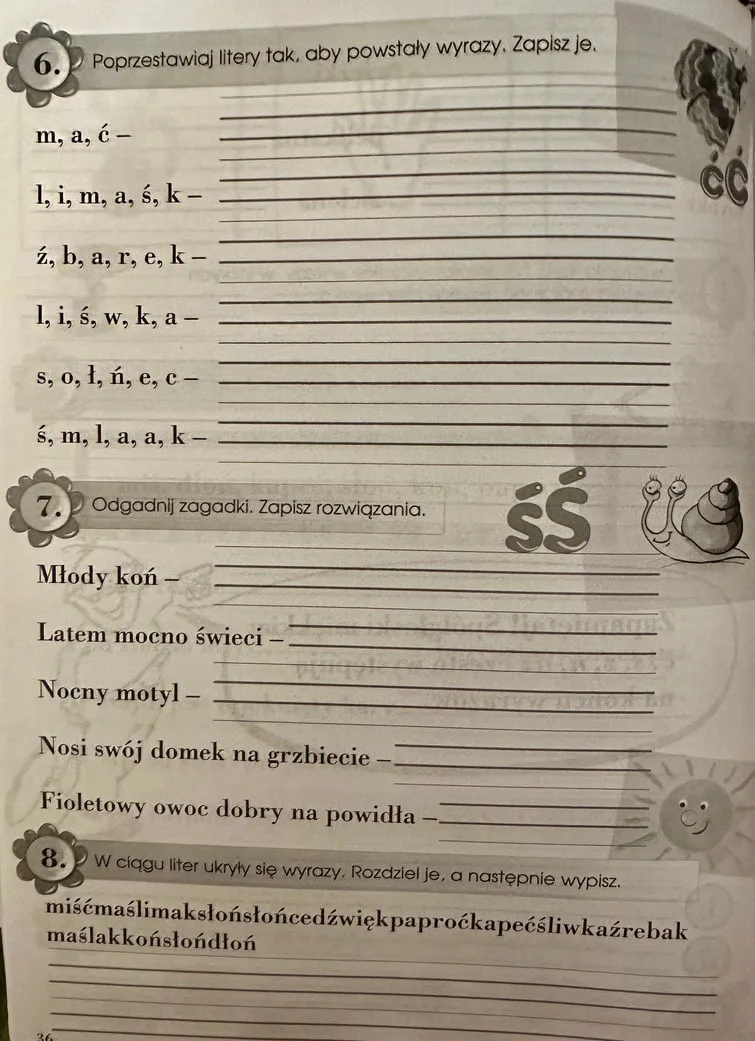 6. Poprzestawiaj litery tak, aby powstały wyrazy. Zapisz je.
ćĆ
m, a, ć –
l, i, m, a, ś, k –
ź, b, a, r, e, k –
l, i, ś, w, k, a –
s, o, ł, ń, e, c –
ś, m, l, a, a, k –
7. Odgadnij zagadki. Zapisz rozwiązania.
śŚ
Młody koń –
Latem mocno świeci –
Nocny motyl –
Nosi swój domek na grzbiecie –
Fioletowy owoc dobry na powidła –
8. W ciągu liter ukryły się wyrazy. Rozdziel je, a następnie wypisz.
miśćmaślimaksłońsłońcedźwiękpaproćkapećśliwkaźrebak
maślakkońsłońdłoń
36